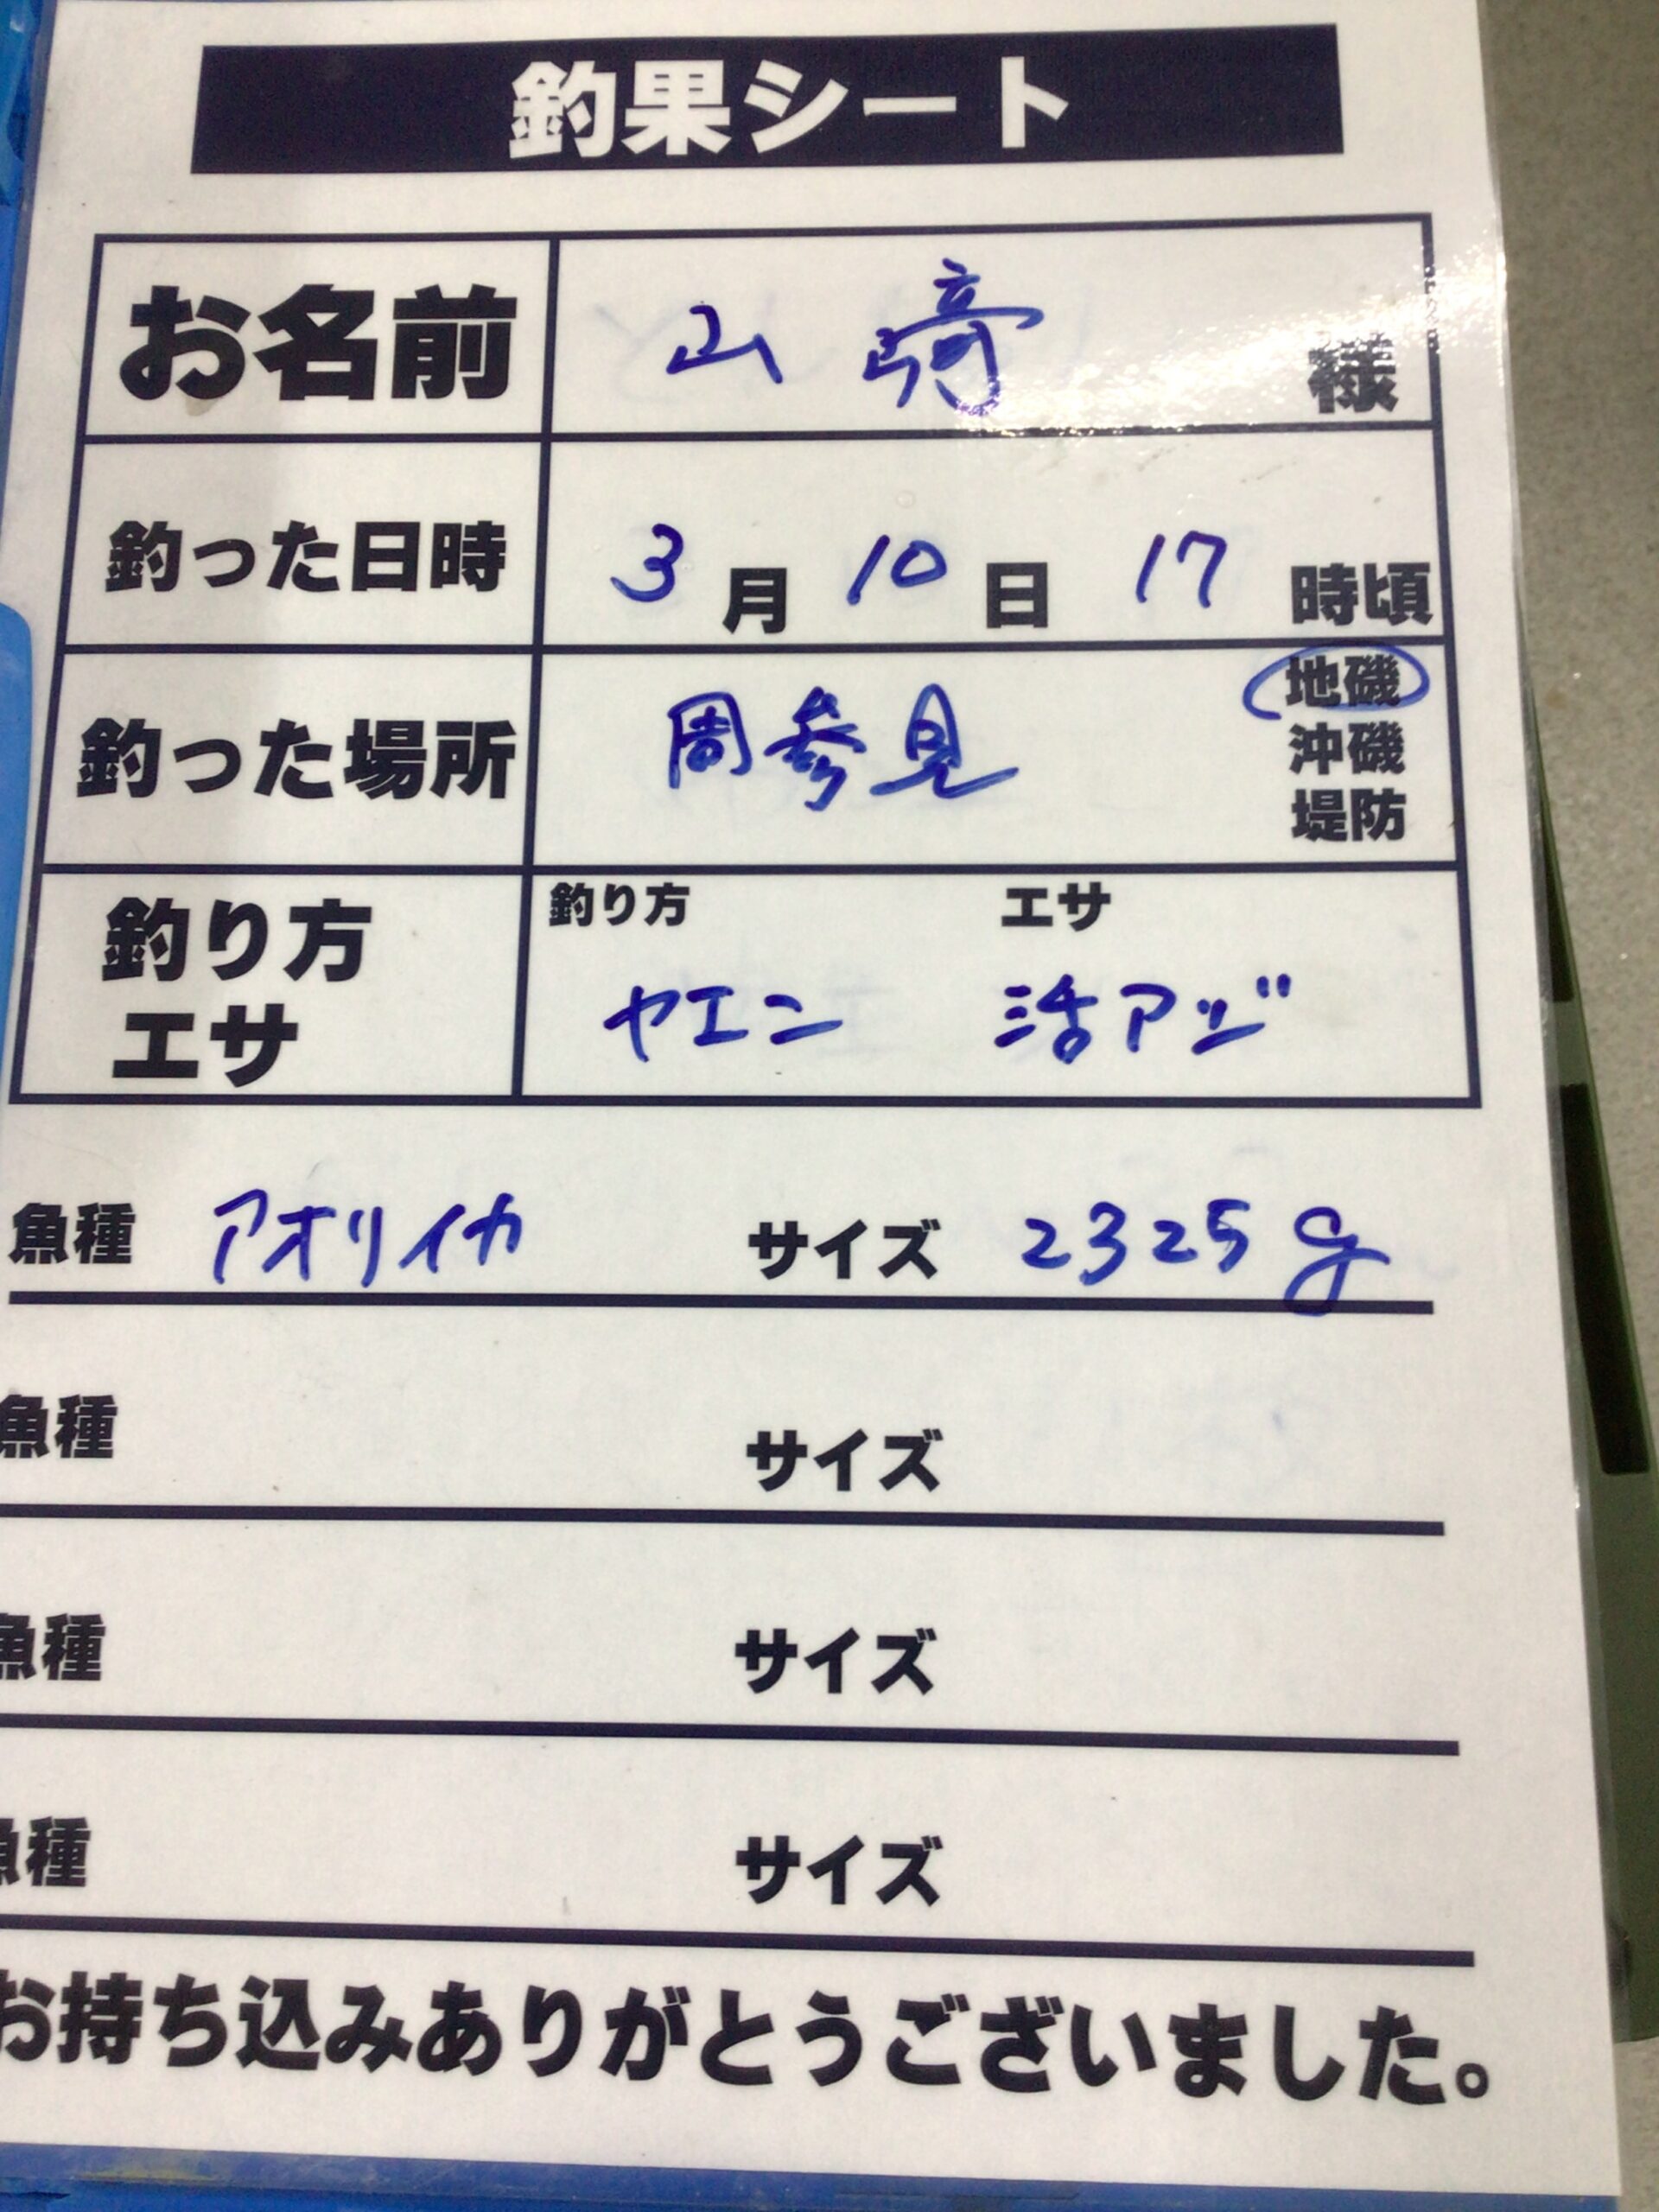 釣果シート
お名前 山﨑 様
釣った日時 3月10日17時頃
釣った場所 周参見 地磯
沖磯
堤防
釣り方 エサ
釣り方 ヤエン 活アジ
エサ
魚種 アオリイカ サイズ 2325g
魚種 サイズ
魚種 サイズ
魚種 サイズ
お持ち込みありがとうございました。